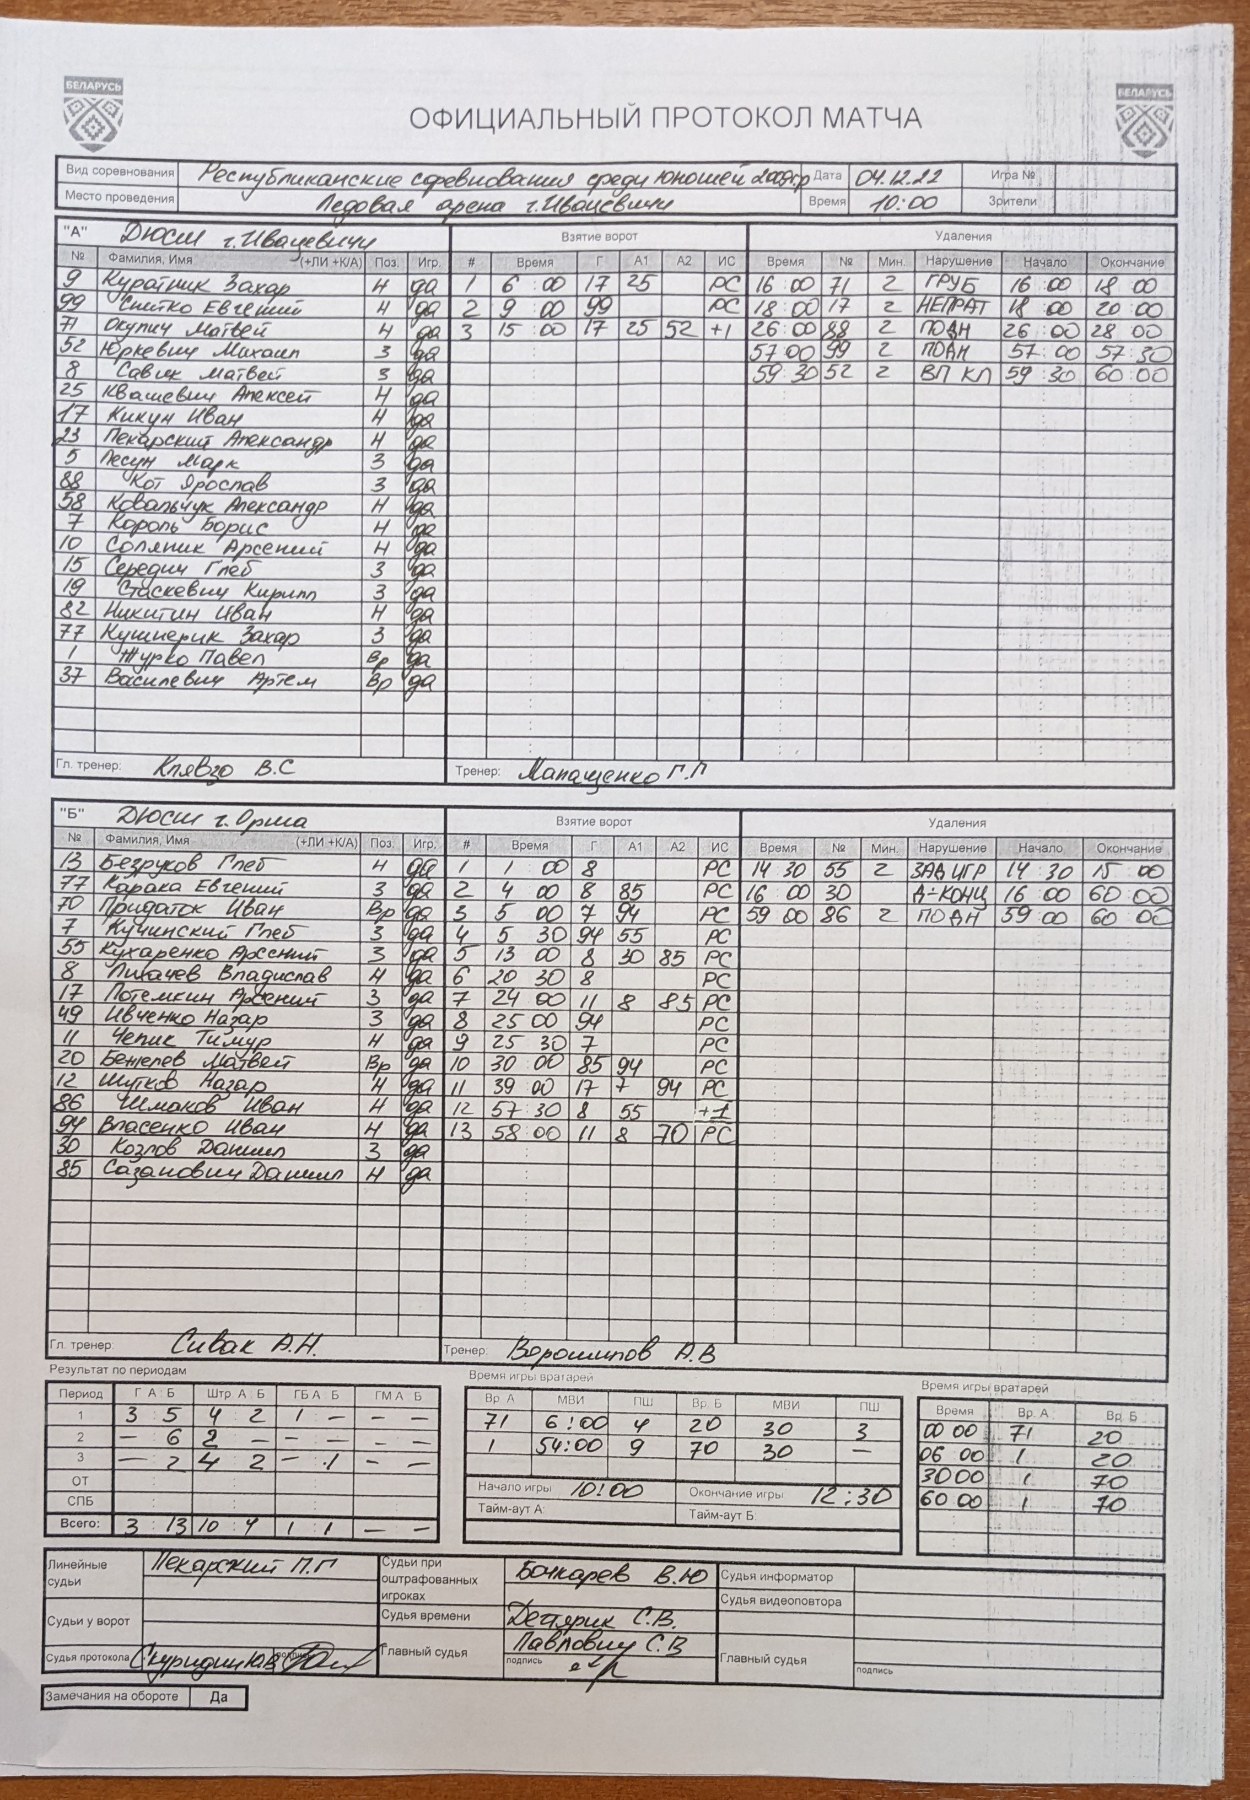 БЕЛАРУСЬ
БЕЛАРУСЬ
ОФИЦИАЛЬНЫЙ ПРОТОКОЛ МАТЧА
Вид соревнования Республиканские соревнования среди юношей 2009г.р Дата 04.12.22 Игра №
Место проведения Ледовая арена г.Ивацевичи Время 10:00 Зрители
"А" ДЮСШ г.Ивацевичи Взятие ворот Удаления
№ Фамилия, Имя (+ЛИ +К/А) Поз. Игр. # Время Г А1 А2 ИС Время № Мин. Нарушение Начало Окончание
9 Куратник Захар Н да 1 6:00 17 25 РС 16 00 71 2 ГРУБ 16:00 18 00
99 Снитко Евгений Н да 2 9:00 99 РС 18:00 17 2 НЕПРАТ 18:00 20:00
71 Окулич Матвей Н да 3 15:00 17 25 52 +1 26:00 88 2 ПОДН 26:00 28 00
52 Юркевич Михаил З да 57 00 99 2 ПОДН 57:00 57:30
8 Савик Матвей З да 59:30 52 2 ВП КЛ 59:30 60:00
25 Квашевич Алексей Н да
17 Кикун Иван Н да
23 Пекарский Александр Н да
5 Лесун Марк З да
88 Кот Ярослав З да
58 Ковальчук Александр Н да
7 Король Борис Н да
10 Соляник Арсений Н да
15 Середич Глеб З да
19 Стаскевич Кирилл З да
82 Никитин Иван Н да
77 Кушнерик Захар З да
1 Журко Павел Вр да
37 Василевич Артем Вр да
Гл. тренер: Клявзо В.С Тренер: Мапащенко Г.П
"Б" ДЮСШ г.Орша Взятие ворот Удаления
№ Фамилия, Имя (+ЛИ +К/А) Поз. Игр. # Время Г А1 А2 ИС Время № Мин. Нарушение Начало Окончание
13 Безруков Глеб Н да 1 1:00 8 РС 14 30 55 2 ЗАД ИГР 14:30 15:00
77 Карака Евгений З да 2 4 00 8 85 РС 16 00 30 Д-КОНЦ 16 00 60:00
70 Придаток Иван Вр да 3 5 00 7 94 РС 59 00 86 2 ПОДН 59:00 60 00
7 Кучинский Глеб З да 4 5 30 94 55 РС
55 Кухаренко Арсений З да 5 13 00 8 30 85 РС
8 Лихачев Владислав Н да 6 20 30 8 РС
17 Потемкин Арсений З да 7 24 00 11 8 85 РС
49 Ивченко Назар З да 8 25 00 94 РС
11 Чепик Тимур Н да 9 25 30 7 РС
20 Бежелев Матвей Вр да 10 30 00 85 94 РС
12 Шутков Назар Н да 11 39:00 17 7 94 РС
86 Чимаков Иван Н да 12 57:30 8 55 +1
94 Власенко Иван Н да 13 58:00 11 8 70 РС
30 Козлов Даниил З да
85 Сазанович Даниил Н да
Гл. тренер: Сивак А.Н. Тренер: Ворошилов А.В
Результат по периодам Время игры вратарей Время игры вратарей
Период Г А : Б Штр. А : Б ГБ А : Б ГМ А Б Вр. А МВИ ПШ Вр. Б МВИ ПШ Время Вр. А Вр. Б
1 3 : 5 4 2 1 – – – 71 6:00 4 20 30 3 00 00 71 20
2 – 6 2 – – – – – 1 54:00 9 70 30 – 06 00 1 20
3 – 2 4 2 – 1 – – 30 00 1 70
ОТ Начало игры 10:00 Окончание игры 12:30 60 00 1 70
СПБ Тайм-аут А: Тайм-аут Б
Всего: 3 : 13 10 : 4 1 1 – –
Линейные судьи Пекарский П.П Судьи при оштрафованных игроках Бочкарев В.Ю Судья информатор
Судьи у ворот Судья времени Дегтярик С.В. Судья видеоповтора
Судья протокола Скуридин Ю.В подпись Главный судья Павлович С.В подпись Главный судья подпись
Замечания на обороте Да